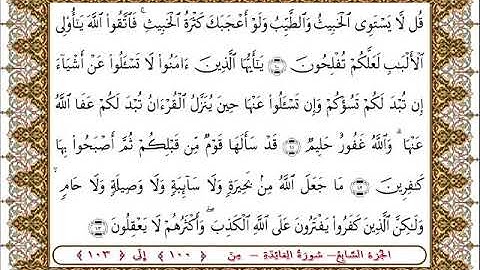 قُل لَّا يَسْتَوِى الْخَبِيثُ وَالطَّيِّبُ وَلَوْ أَعْجَبَكَ كَثْرَةُ الْخَبِيثِ ۚ فَاتَّقُوا اللَّهَ يَٰأُولِى
الْأَلْبَٰبِ لَعَلَّكُمْ تُفْلِحُونَ ١٠٠ يَٰأَيُّهَا الَّذِينَ ءَامَنُوا لَا تَسْـَٔلُوا عَنْ أَشْيَآءَ
إِن تُبْدَ لَكُمْ تَسُؤْكُمْ وَإِن تَسْـَٔلُوا عَنْهَا حِينَ يُنَزَّلُ الْقُرْءَانُ تُبْدَ لَكُمْ عَفَا اللَّهُ
عَنْهَا ۗ وَاللَّهُ غَفُورٌ حَلِيمٌ ١٠١ قَدْ سَأَلَهَا قَوْمٌ مِّن قَبْلِكُمْ ثُمَّ أَصْبَحُوا بِهَا
كَٰفِرِينَ ١٠٢ مَا جَعَلَ اللَّهُ مِنۢ بَحِيرَةٍ وَلَا سَآئِبَةٍ وَلَا وَصِيلَةٍ وَلَا حَامٍ ۙ
وَلَٰكِنَّ الَّذِينَ كَفَرُوا يَفْتَرُونَ عَلَى اللَّهِ الْكَذِبَ ۖ وَأَكْثَرُهُمْ لَا يَعْقِلُونَ ١٠٣
الجزء السابع - سورة المائدة - من ﴿ ١٠٠ ﴾ إلى ﴿ ١٠٣ ﴾